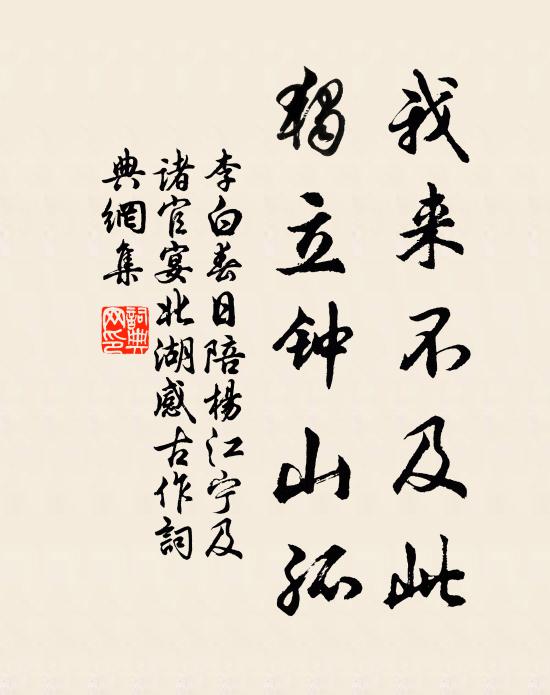 我来不及此
獨立钟山孤
李白春日陪楊江宁及
诸官宴北湖感古作詞
典網集
詞典網印